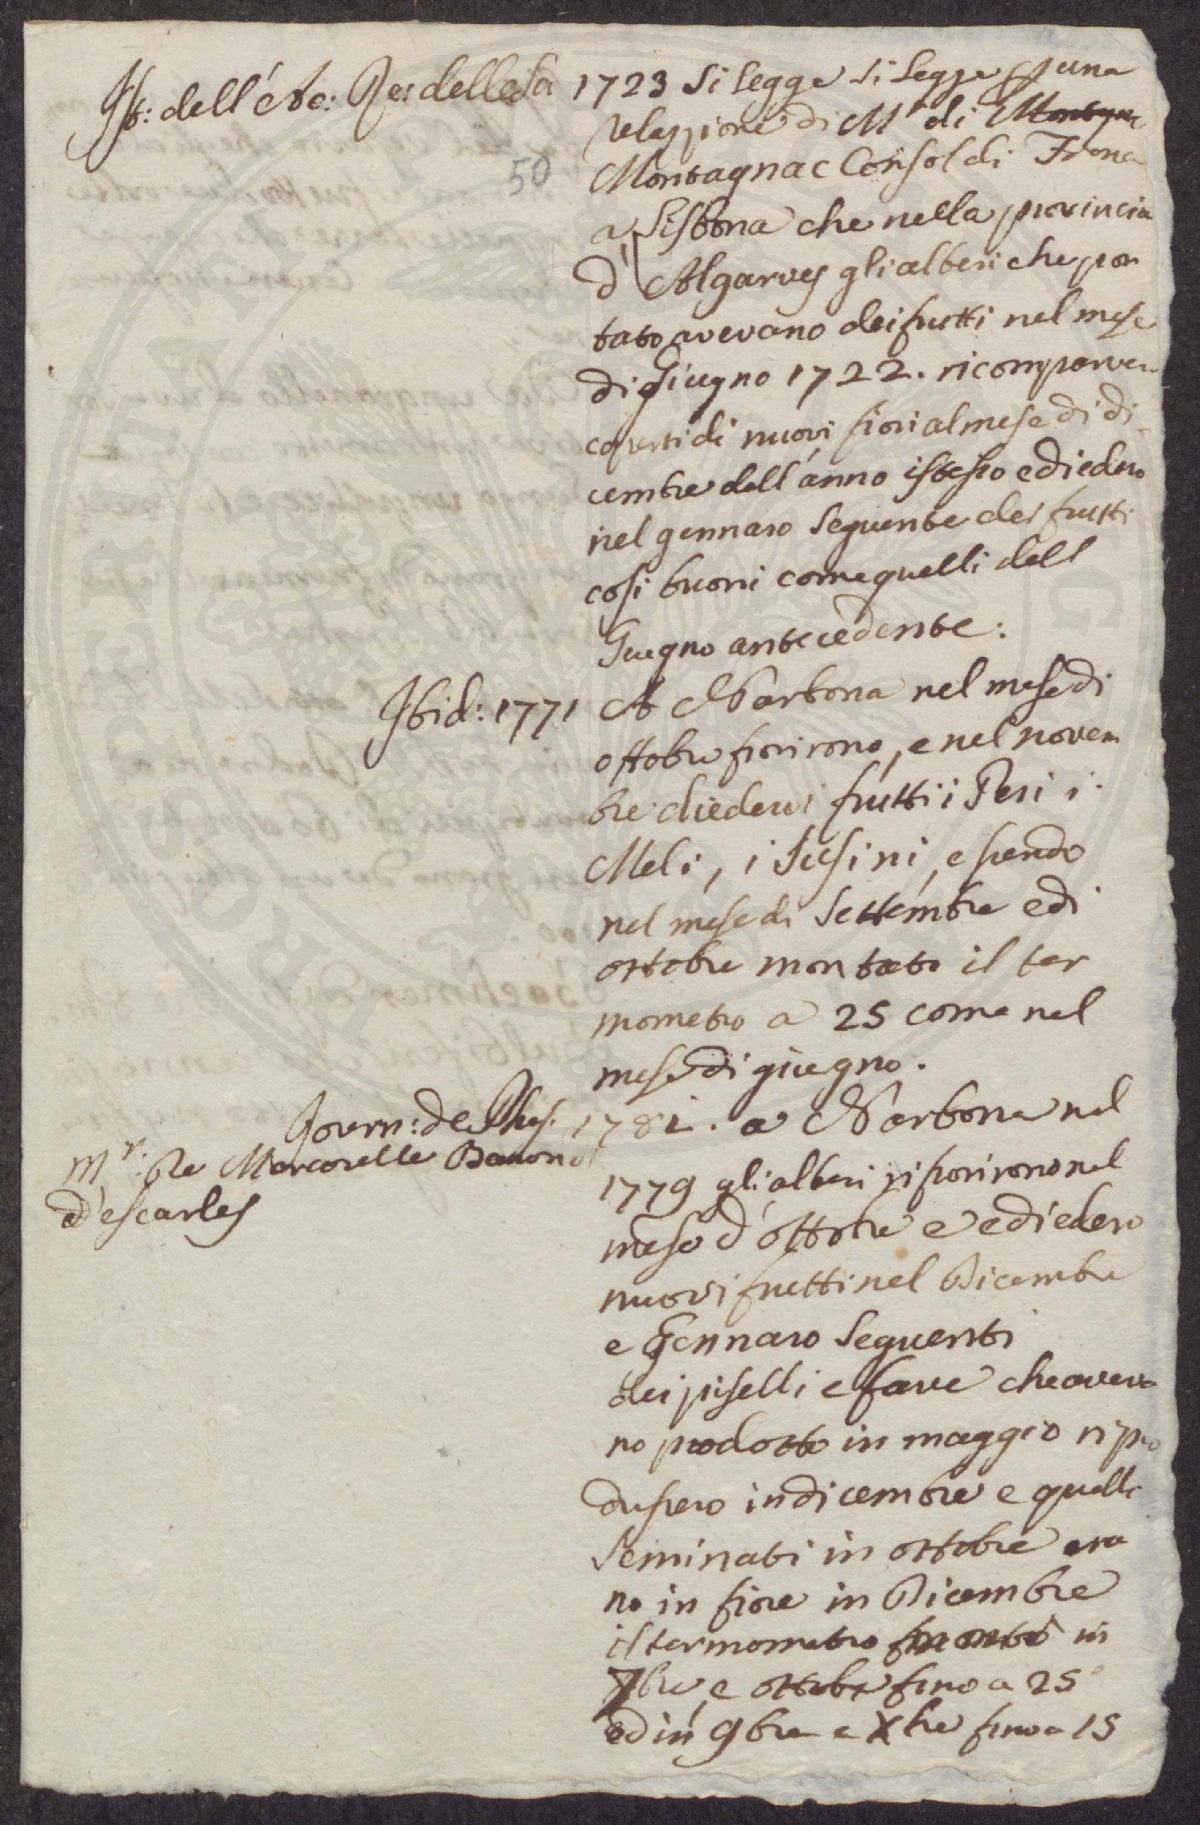 Ist: dell'Ac: Re: delle Sci 1723 Si legge si legge una
relazzione di Mr di Montgnac
50
Montagnac Consol di Franci
a Lisbona che nella provincia
d'Algarves gli alberi che por
tato avevano dei frutti nel mese
di Giugno 1722. ricomparvero
coperti di nuovi fiori al mese di di-
cembre dell'anno istesso e diedero
nel gennaro seguente dei frutti
cosi buoni come quelli dell
Giugno antecedente:
Ibid: 1771 A Narbona nel mese di
ottobre fiorirono, e nel novem
bre diedero frutti i Peri i
Meli, i Susini, essendo
nel mese di Settembre e di
ottobre montato il ter
mometro a 25 come nel
mese di giugno.
Journ: de Phys. 1782. a Narbona nel
Mr: de Marcorelle Baron
d'escarles
1779 gli alberi rifiorirono nel
mese d'ottobre e ediedero
nuovi frutti nel Dicembre
e Gennaro seguenti
dei piselli e fave che aveva
no prodotto in maggio ripro
dussero in dicembre e quelli
seminati in ottobre era
no in fiore in Dicembre
il termometro montò in
7bre, e ottobre fino a 25°
ed in 9bre e Xbre fino a 15